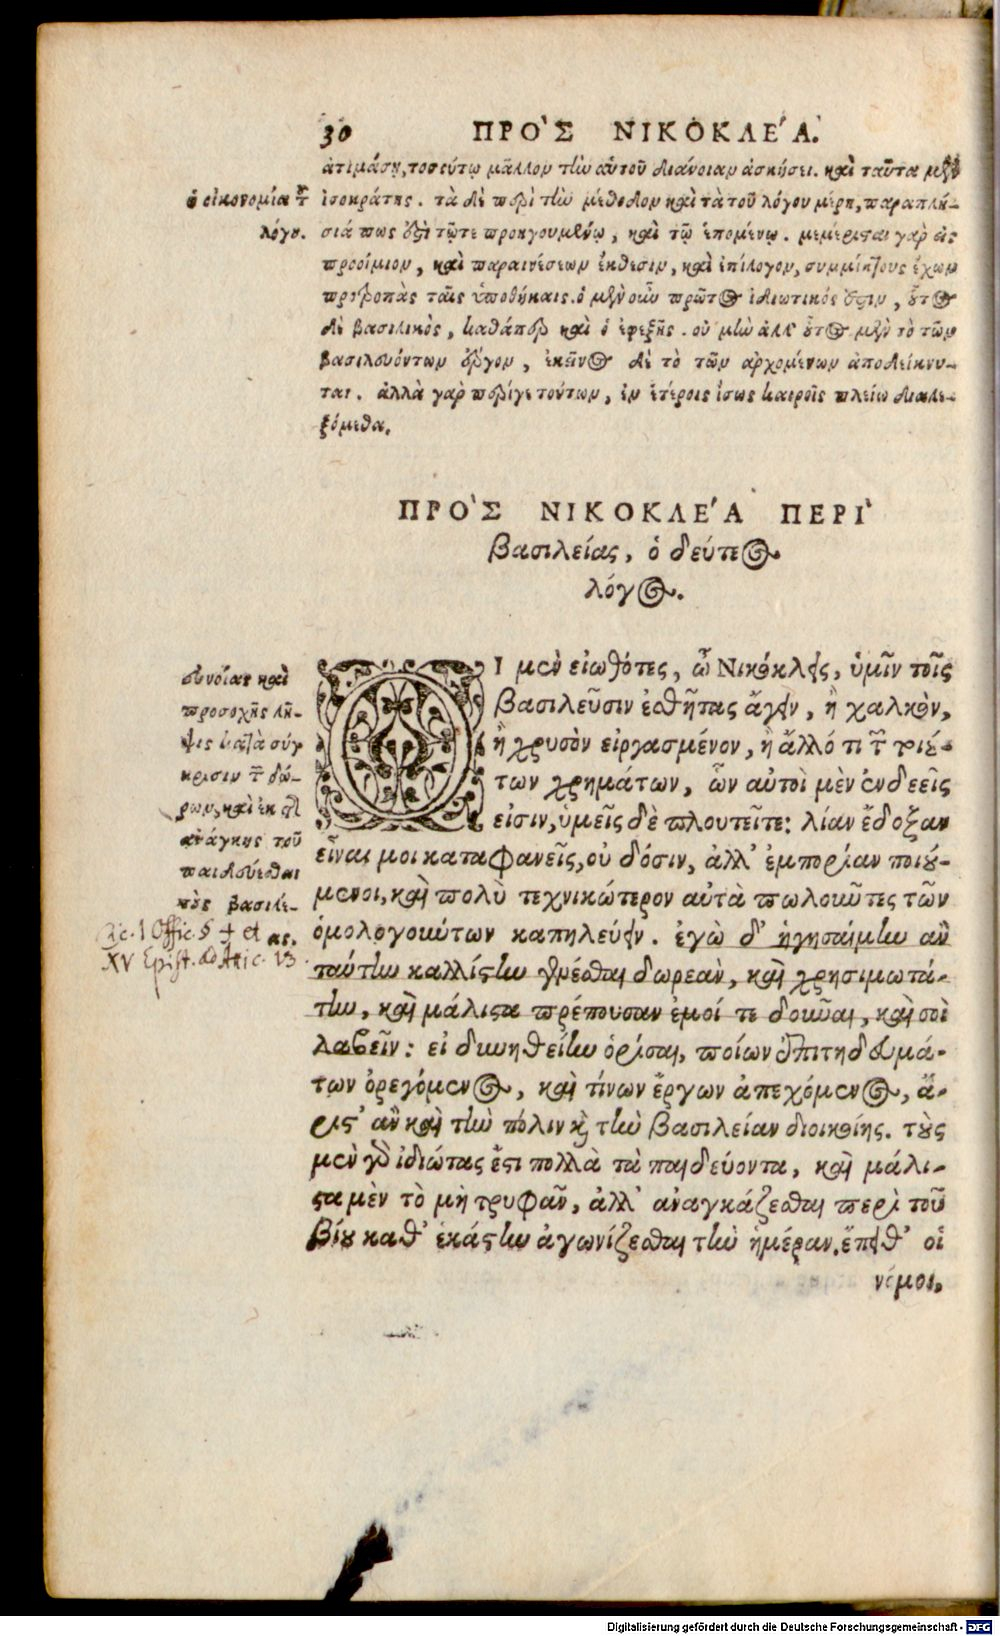 30 ΠΡΟ`Σ ΝΙΚΟΚΛΕ´Α.
ἀτιμάσῃ, τοσούτῳ μᾶλλον τὴν αὑτοῦ διάνοιαν ἀσκήσει. καὶ ταῦτα μὲν
ἰσοκράτης. τὰ δὲ περὶ τὴν μέθοδον καὶ τὰ τοῦ λόγου μέρη, παραπλή-
σιά πως ἐστὶ τῷτε προηγουμένῳ, καὶ τῷ ἑπομένῳ. μεμέρισται γὰρ εἰς
προοίμιον, καὶ παραινέσεων ἔκθεσιν, καὶ ἐπίλογον, συμμίκτους ἔχων
προτροπὰς ταῖς ὑποθήκαις. ὁ μὲν οὖν πρῶτος ἰδιωτικός ἐστιν, οὗτος
δὲ βασιλικὸς, καθάπερ καὶ ὁ ἐφεξῆς. οὐ μὴν ἀλλ' οὗτος μὲν τὸ τῶν
βασιλευόντων ἔργον, ἐκεῖνος δὲ τὸ τῶν ἀρχομένων ἀποδείκνυ-
ται. ἀλλὰ γὰρ περίγε τούτων, ἐν ἑτέροις ἴσως καιροῖς πλείω διαλε-
ξόμεθα.
ὁ οἰκονομία τοῦ
λόγου.
ΠΡΟ`Σ ΝΙΚΟΚΛΕ´Α ΠΕΡΙ`
βασιλείας, ὁ δεύτερος
λόγος.
ΟΙ μὲν εἰωθότες, ὦ Νικόκλεις, ὑμῖν τοῖς
βασιλεῦσιν ἐσθῆτας ἄγειν, ἢ χαλκὸν,
ἢ χρυσὸν εἰργασμένον, ἢ ἄλλό τι τῶν τοιού-
των χρημάτων, ὧν αὐτοὶ μὲν ἐνδεεῖς
εἰσιν, ὑμεῖς δὲ πλουτεῖτε: λίαν ἔδοξαν
εἶναι μοι καταφανεῖς, οὐ δόσιν, ἀλλ' ἐμπορίαν ποιού-
μενοι, καὶ πολὺ τεχνικώτερον αὐτὰ πωλοῦντες τῶν
ὁμολογούντων καπηλεύειν. ἐγὼ δ' ἡγησαίμην ἂν
ταύτην καλλίστην γενέσθαι δωρεὰν, καὶ χρησιμωτά-
την, καὶ μάλιστα πρέπουσαν ἐμοί τε δοῦναι, καὶ σοὶ
λαβεῖν: εἰ δυνηθείην ὁρίσαι, ποίων ἐπιτηδευμά-
των ὀρεγόμενος, καὶ τίνων ἔργων ἀπεχόμενος, ἄ-
ριστ' ἂν καὶ τὴν πόλιν καὶ τὴν βασιλείαν διοικοίης. τοὺς
μὲν γὰρ ἰδιώτας ἔστι πολλὰ τὰ παιδεύοντα, καὶ μάλι-
στα μὲν τὸ μὴ τρυφᾶν, ἀλλ' ἀναγκάζεσθαι περὶ τοῦ
βίου καθ' ἑκάστην ἀγωνίζεσθαι τὴν ἡμέραν. ἔπειθ' οἱ
νόμοι,
εὐνοίας καὶ
προσοχῆς λῆ-
ψις κατὰ σύγ
κρισιν τῶν δώ-
ρων, καὶ ἐκ τῆς
ἀνάγκης τοῦ
παιδεύεσθαι
τοὺς βασιλέ-
ας.
Cic. 1 Offic. 5 + et
XV Epist. ad Attic. 13.
Digitalisierung gefördert durch die Deutsche Forschungsgemeinschaft - DFG